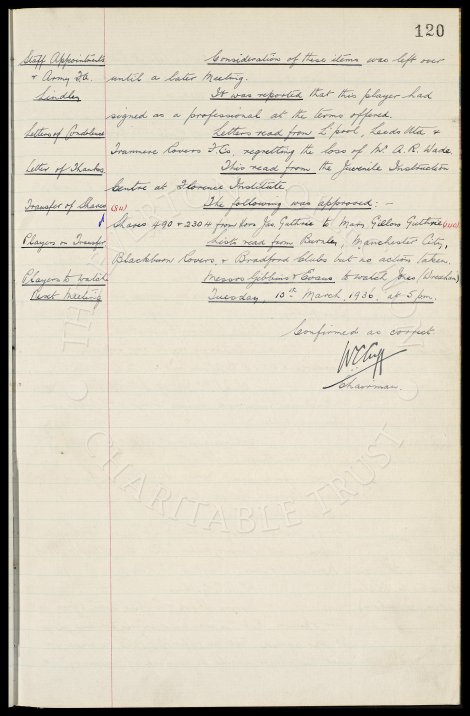 120
Staff Appointments Consideration of these items was left over
& Army F.A. until a later Meeting.
Lindley It was reported that this player had
signed as a professional at the terms offered.
Letters of Condolence Letters read from L'pool, Leeds Utd &
Tranmere Rovers F. Co, regretting the loss of Mr. A. R. Wade.
Letter of Thanks This read from the Juvenile Instruction
Centre at Florence Institute
Transfer of Shares The following was approved: -
Shares 490 & 2304 from Jas. Guthrie to Mary Guthrie
Players on Transfer Lists read from Burnley, Manchester City,
Blackburn Rovers & Bradford Clubs but no action taken.
Players to watch Messrs Gibbins & Evans to watch Jones (Wrexham)
Next Meeting Tuesday 10th March 1936 at 5 pm.
Confirmed as correct
W.C. Cuff
Chairman.
CHARITABLE TRUST